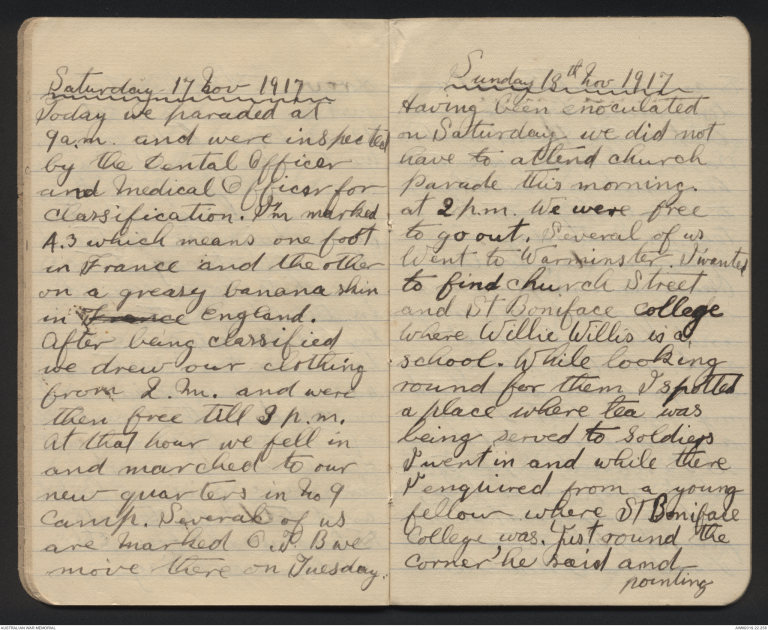 Saturday 17 Nov 1917
Today we paraded at
9 a.m. and were inspected
by the Dental Officer
and Medical Officer for
classification. I'm marked
A.3 which means one foot
in France and the other
on a greasy banana skin
in France England.
After being classified
we drew our clothing
from 2.M. and were
then free till 3 p.m.
At that hour we fell in
and marched to our
new quarters in No 9
Camp. Several of us
are marked O.I.B we
move there on Tuesday.
Sunday 18th Nov 1917
Having been enoculated
on Saturday we did not
have to attend church
parade this morning.
at 2 p.m. We were free
to go out. Several of us
Went to Warminster. I wanted
to find church Street
and St Boniface college
where Willie Willis is a
school. While looking
round for them I spotted
a place where tea was
being served to soldiers
I went in and while there
I enquired from a young
fellow where St Boniface
College was. Just round the
corner he said and
pointing
AUSTRALIAN WAR MEMORIAL